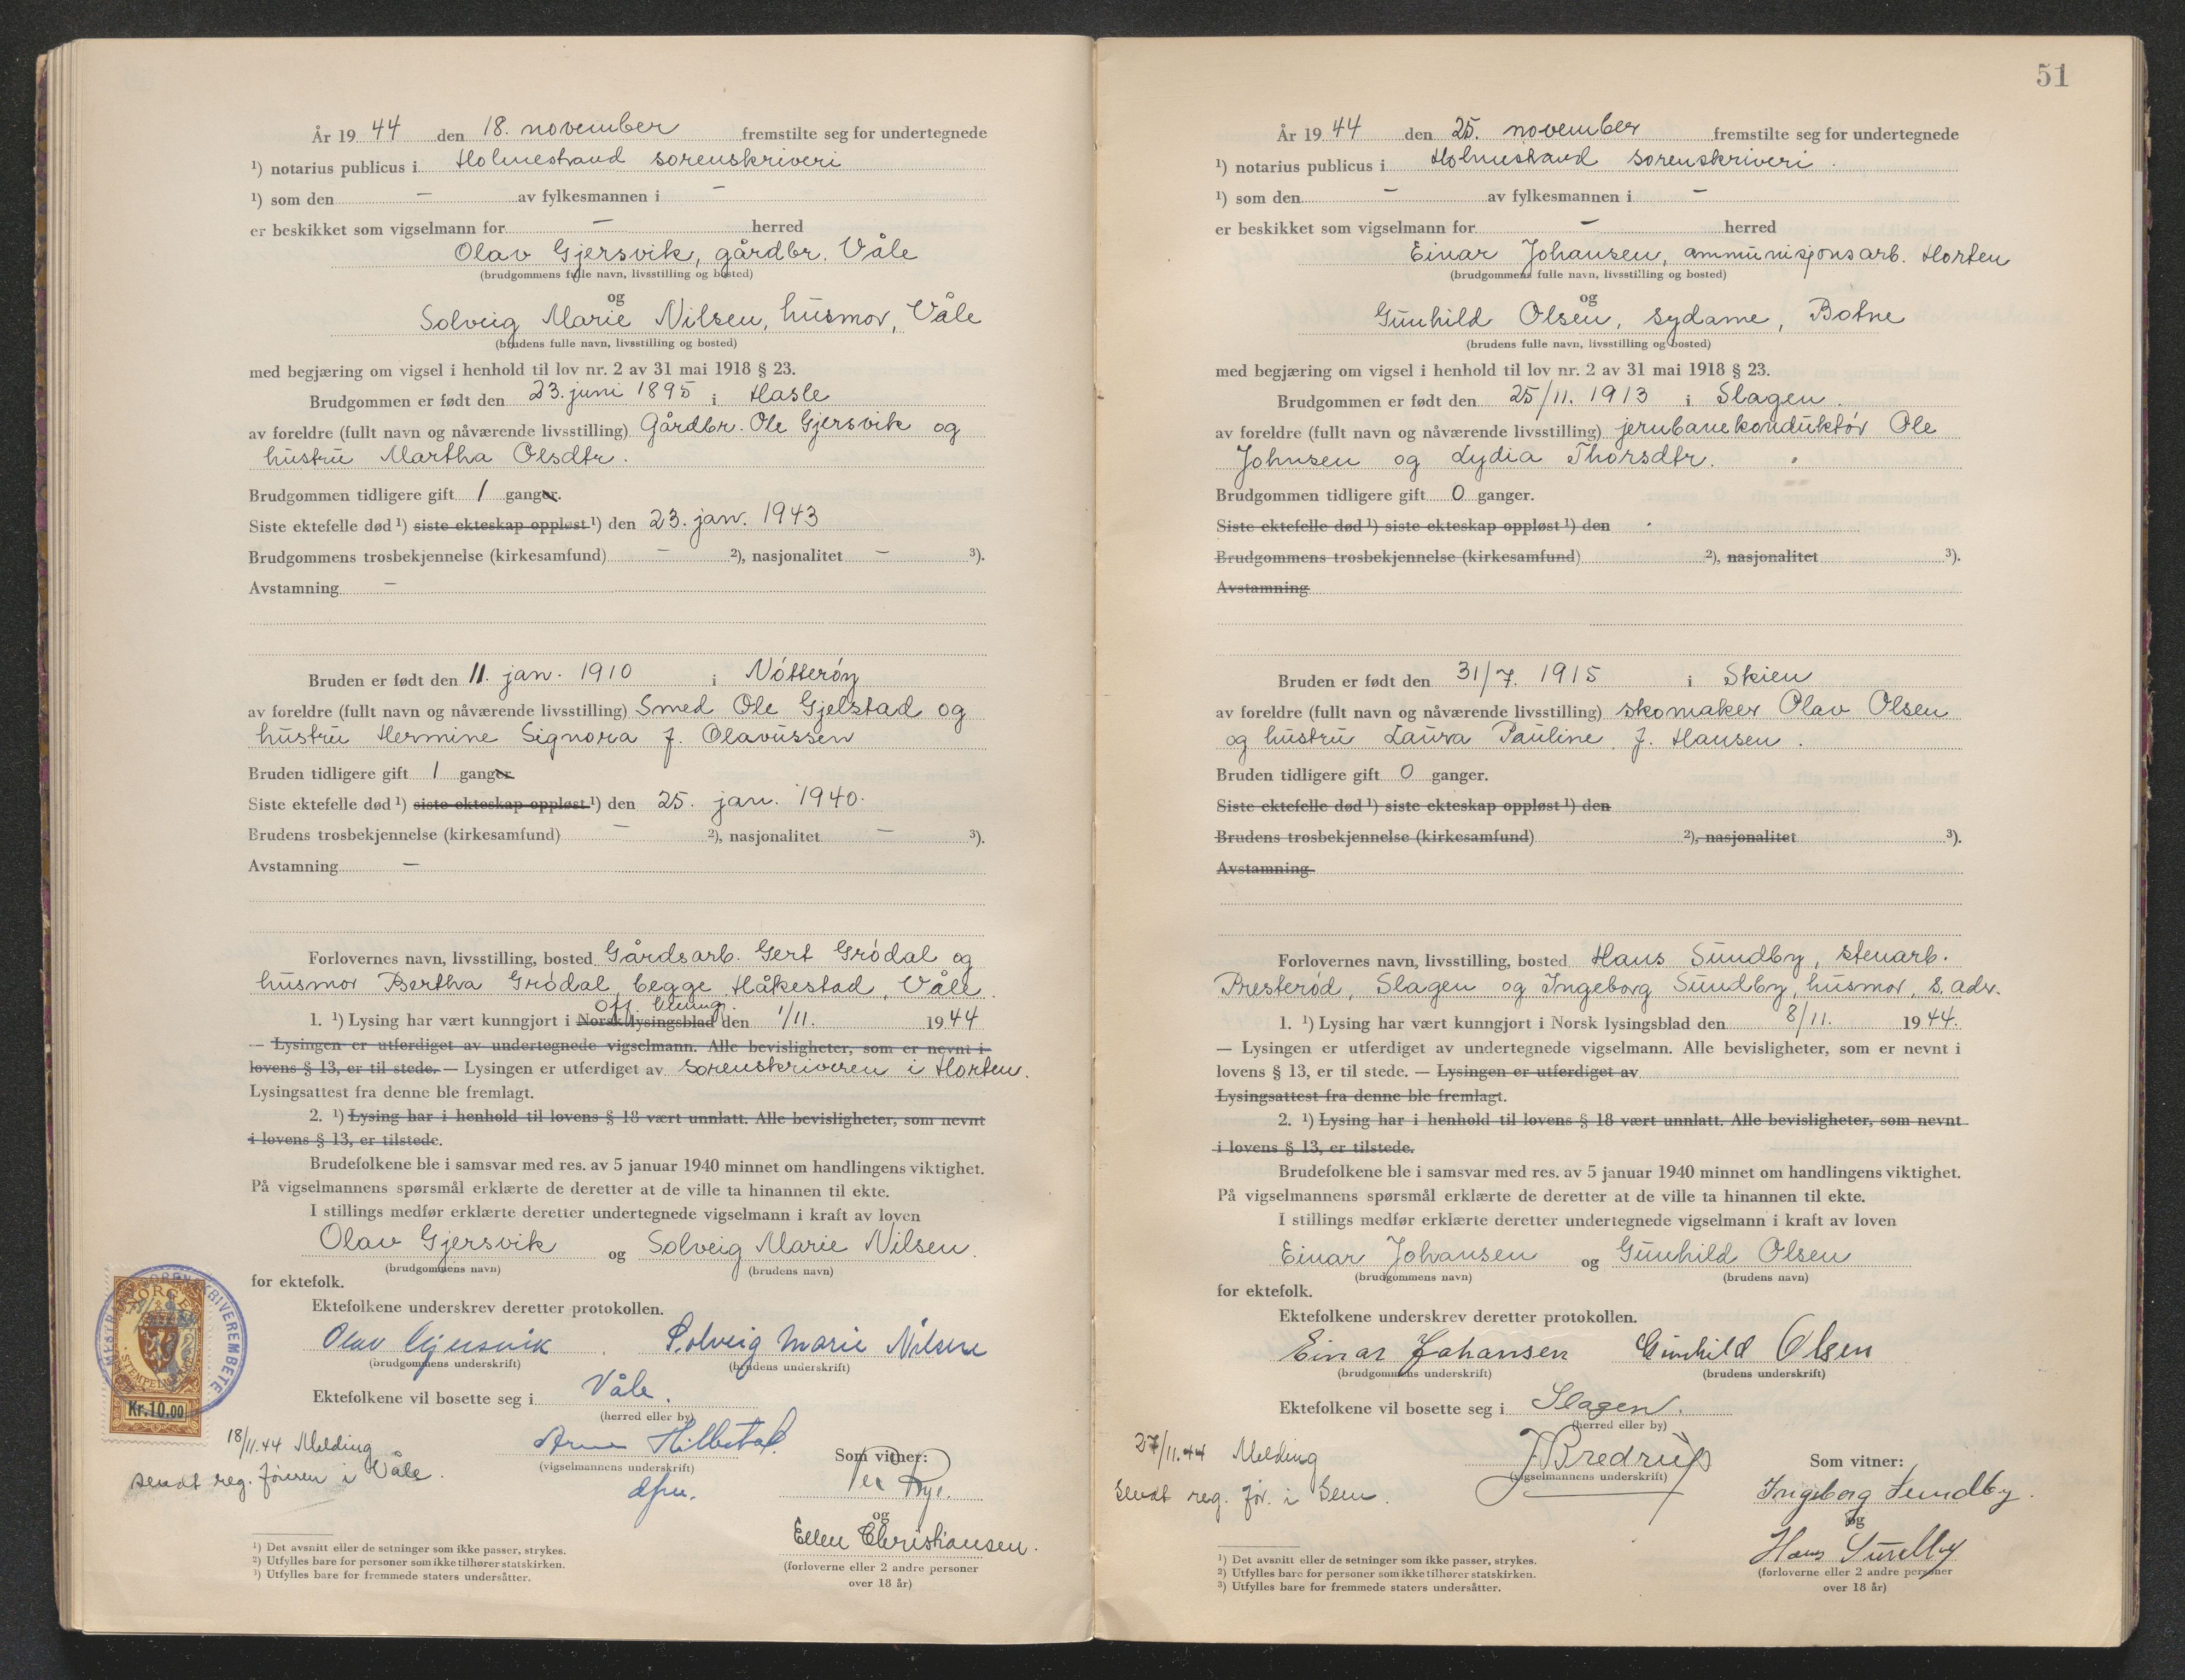 År 19 44 den 18. november fremstilte seg for undertegnede
¹) notarius publicus i Holmestrand sorenskriveri
¹) som den – av fylkesmannen i –
er beskikket som vigselmann for – herred
Olav Gjersvik, gårdbr. Våle
(brudgommens fulle navn, livsstilling og bosted)
og
Solveig Marie Nilsen, husmor, Våle
(brudens fulle navn, livsstilling og bosted)
med begjæring om vigsel i henhold til lov nr. 2 av 31 mai 1918 § 23.
Brudgommen er født den 23. juni 1895 i Hasle
av foreldre (fullt navn og nåværende livsstilling) Gårdbr. Ole Gjersvik og
hustru Martha Olsdtr.
Brudgommen tidligere gift 1 ganger.
Siste ektefelle død ¹) siste ekteskap oppløst ¹) den 23. jan. 1943
Brudgommens trosbekjennelse (kirkesamfund) – ²), nasjonalitet – ³).
Avstamning –
Bruden er født den 11. jan. 1910 i Nötteröy
av foreldre (fullt navn og nåværende livsstilling) Smed Ole Gjelstad og
hustru Hermine Signora f. Olavussen
Bruden tidligere gift 1 ganger
Siste ektefelle død ¹) siste ekteskap oppløst ¹) den 25. jan. 1940.
Brudens trosbekjennelse (kirkesamfund) – ²), nasjonalitet – ³).
Avstamning –
Forlovernes navn, livsstilling, bosted Gårdsarb. Gert Grödal og
husmor Bertha Grödal, begge Håkestad, Våle.
Off. lysing.
1. ¹) Lysing har vært kunngjort i Norsk lysingsblad den 1/11. 19 44
— Lysingen er utferdiget av undertegnede vigselmann. Alle bevisligheter, som er nevnt i
lovens § 13, er til stede. — Lysingen er utferdiget av sorenskriveren i Horten.
Lysingsattest fra denne ble fremlagt.
2. ¹) Lysing har i henhold til lovens § 18 vært unnlatt. Alle bevisligheter, som nevnt
i lovens § 13, er tilstede.
Brudefolkene ble i samsvar med res. av 5 januar 1940 minnet om handlingens viktighet.
På vigselmannens spørsmål erklærte de deretter at de ville ta hinannen til ekte.
I stillings medfør erklærte deretter undertegnede vigselmann i kraft av loven
Olav Gjersvik og Solveig Marie Nilsen.
(brudgommens navn) (brudens navn)
for ektefolk.
Ektefolkene underskrev deretter protokollen.
Olav Gjersvik. Solveig Marie Nilsen
(brudgommens underskrift) (brudens underskrift)
Ektefolkene vil bosette seg i Våle.
(herred eller by)
NORGE
STEMPEL
Kr. 10.00
SORENSKRIVEREMBETE
18/11.44 Melding
sendt reg. föreren i Våle.
Arne
(vigselmannens underskrift)
dfm.
Som vitner:
Rye.
og
Ellen Christiansen.
(forloverne eller 2 andre personer
over 18 år)
¹) Det avsnitt eller de setninger som ikke passer, strykes.
²) Utfylles bare for personer som ikke tilhører statskirken.
³) Utfylles bare for fremmede staters undersåtter.
51
År 19 44 den 25. november fremstilte seg for undertegnede
¹) notarius publicus i Holmestrand sorenskriveri.
¹) som den – av fylkesmannen i –
er beskikket som vigselmann for – herred
Einar Johansen, ammunisjonsarb. Horten
(brudgommens fulle navn, livsstilling og bosted)
og
Gunhild Olsen, sydame, Botne
(brudens fulle navn, livsstilling og bosted)
med begjæring om vigsel i henhold til lov nr. 2 av 31 mai 1918 § 23.
Brudgommen er født den 25/11. 1913 i Slagen.
av foreldre (fullt navn og nåværende livsstilling) jernbanekonduktör Ole
Johnsen og Lydia Thorsdtr.
Brudgommen tidligere gift 0 ganger.
Siste ektefelle død ¹) siste ekteskap oppløst ¹) den
Brudgommens trosbekjennelse (kirkesamfund) ²), nasjonalitet ³).
Avstamning
Bruden er født den 31/7. 1915 i Skien
av foreldre (fullt navn og nåværende livsstilling) skomaker Olav Olsen
og hustru Laura Pauline, f. Hansen.
Bruden tidligere gift 0 ganger.
Siste ektefelle død ¹) siste ekteskap oppløst ¹) den
Brudens trosbekjennelse (kirkesamfund) ²), nasjonalitet ³).
Avstamning
Forlovernes navn, livsstilling, bosted Hans Sundby, stenarb.
Presteröd, Slagen og Ingeborg Sundby, husmor, s. adr.
1. ¹) Lysing har vært kunngjort i Norsk lysingsblad den 8/11. 19 44.
— Lysingen er utferdiget av undertegnede vigselmann. Alle bevisligheter, som er nevnt i
lovens § 13, er til stede. — Lysingen er utferdiget av
Lysingsattest fra denne ble fremlagt.
2. ¹) Lysing har i henhold til lovens § 18 vært unnlatt. Alle bevisligheter, som nevnt
i lovens § 13, er tilstede.
Brudefolkene ble i samsvar med res. av 5 januar 1940 minnet om handlingens viktighet.
På vigselmannens spørsmål erklærte de deretter at de ville ta hinannen til ekte.
I stillings medfør erklærte deretter undertegnede vigselmann i kraft av loven
Einar Johansen og Gunhild Olsen
(brudgommens navn) (brudens navn)
for ektefolk.
Ektefolkene underskrev deretter protokollen.
Einar Johansen Gunhild Olsen
(brudgommens underskrift) (brudens underskrift)
Ektefolkene vil bosette seg i Slagen.
(herred eller by)
27/11.44 Melding
sendt reg. för. i Sem.
J Bredrup
(vigselmannens underskrift)
Som vitner:
Ingeborg Sundby.
og
Hans Sundby
(forloverne eller 2 andre personer
over 18 år)
¹) Det avsnitt eller de setninger som ikke passer, strykes.
²) Utfylles bare for personer som ikke tilhører statskirken.
³) Utfylles bare for fremmede staters undersåtter.